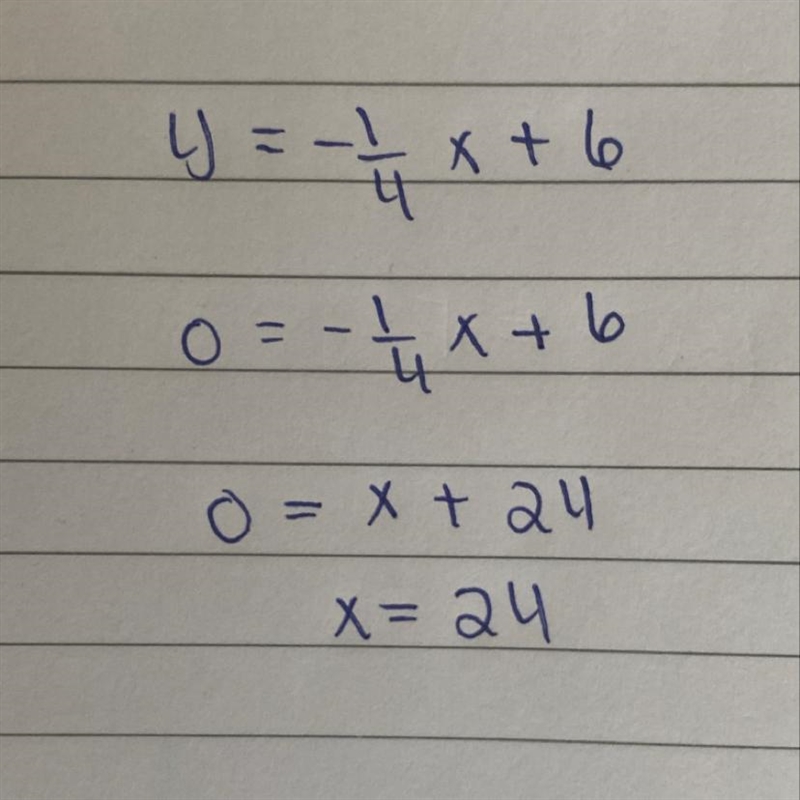 y = -1/4 x + 6
0 = -1/4 x + 6
0 = x + 24
x = 24